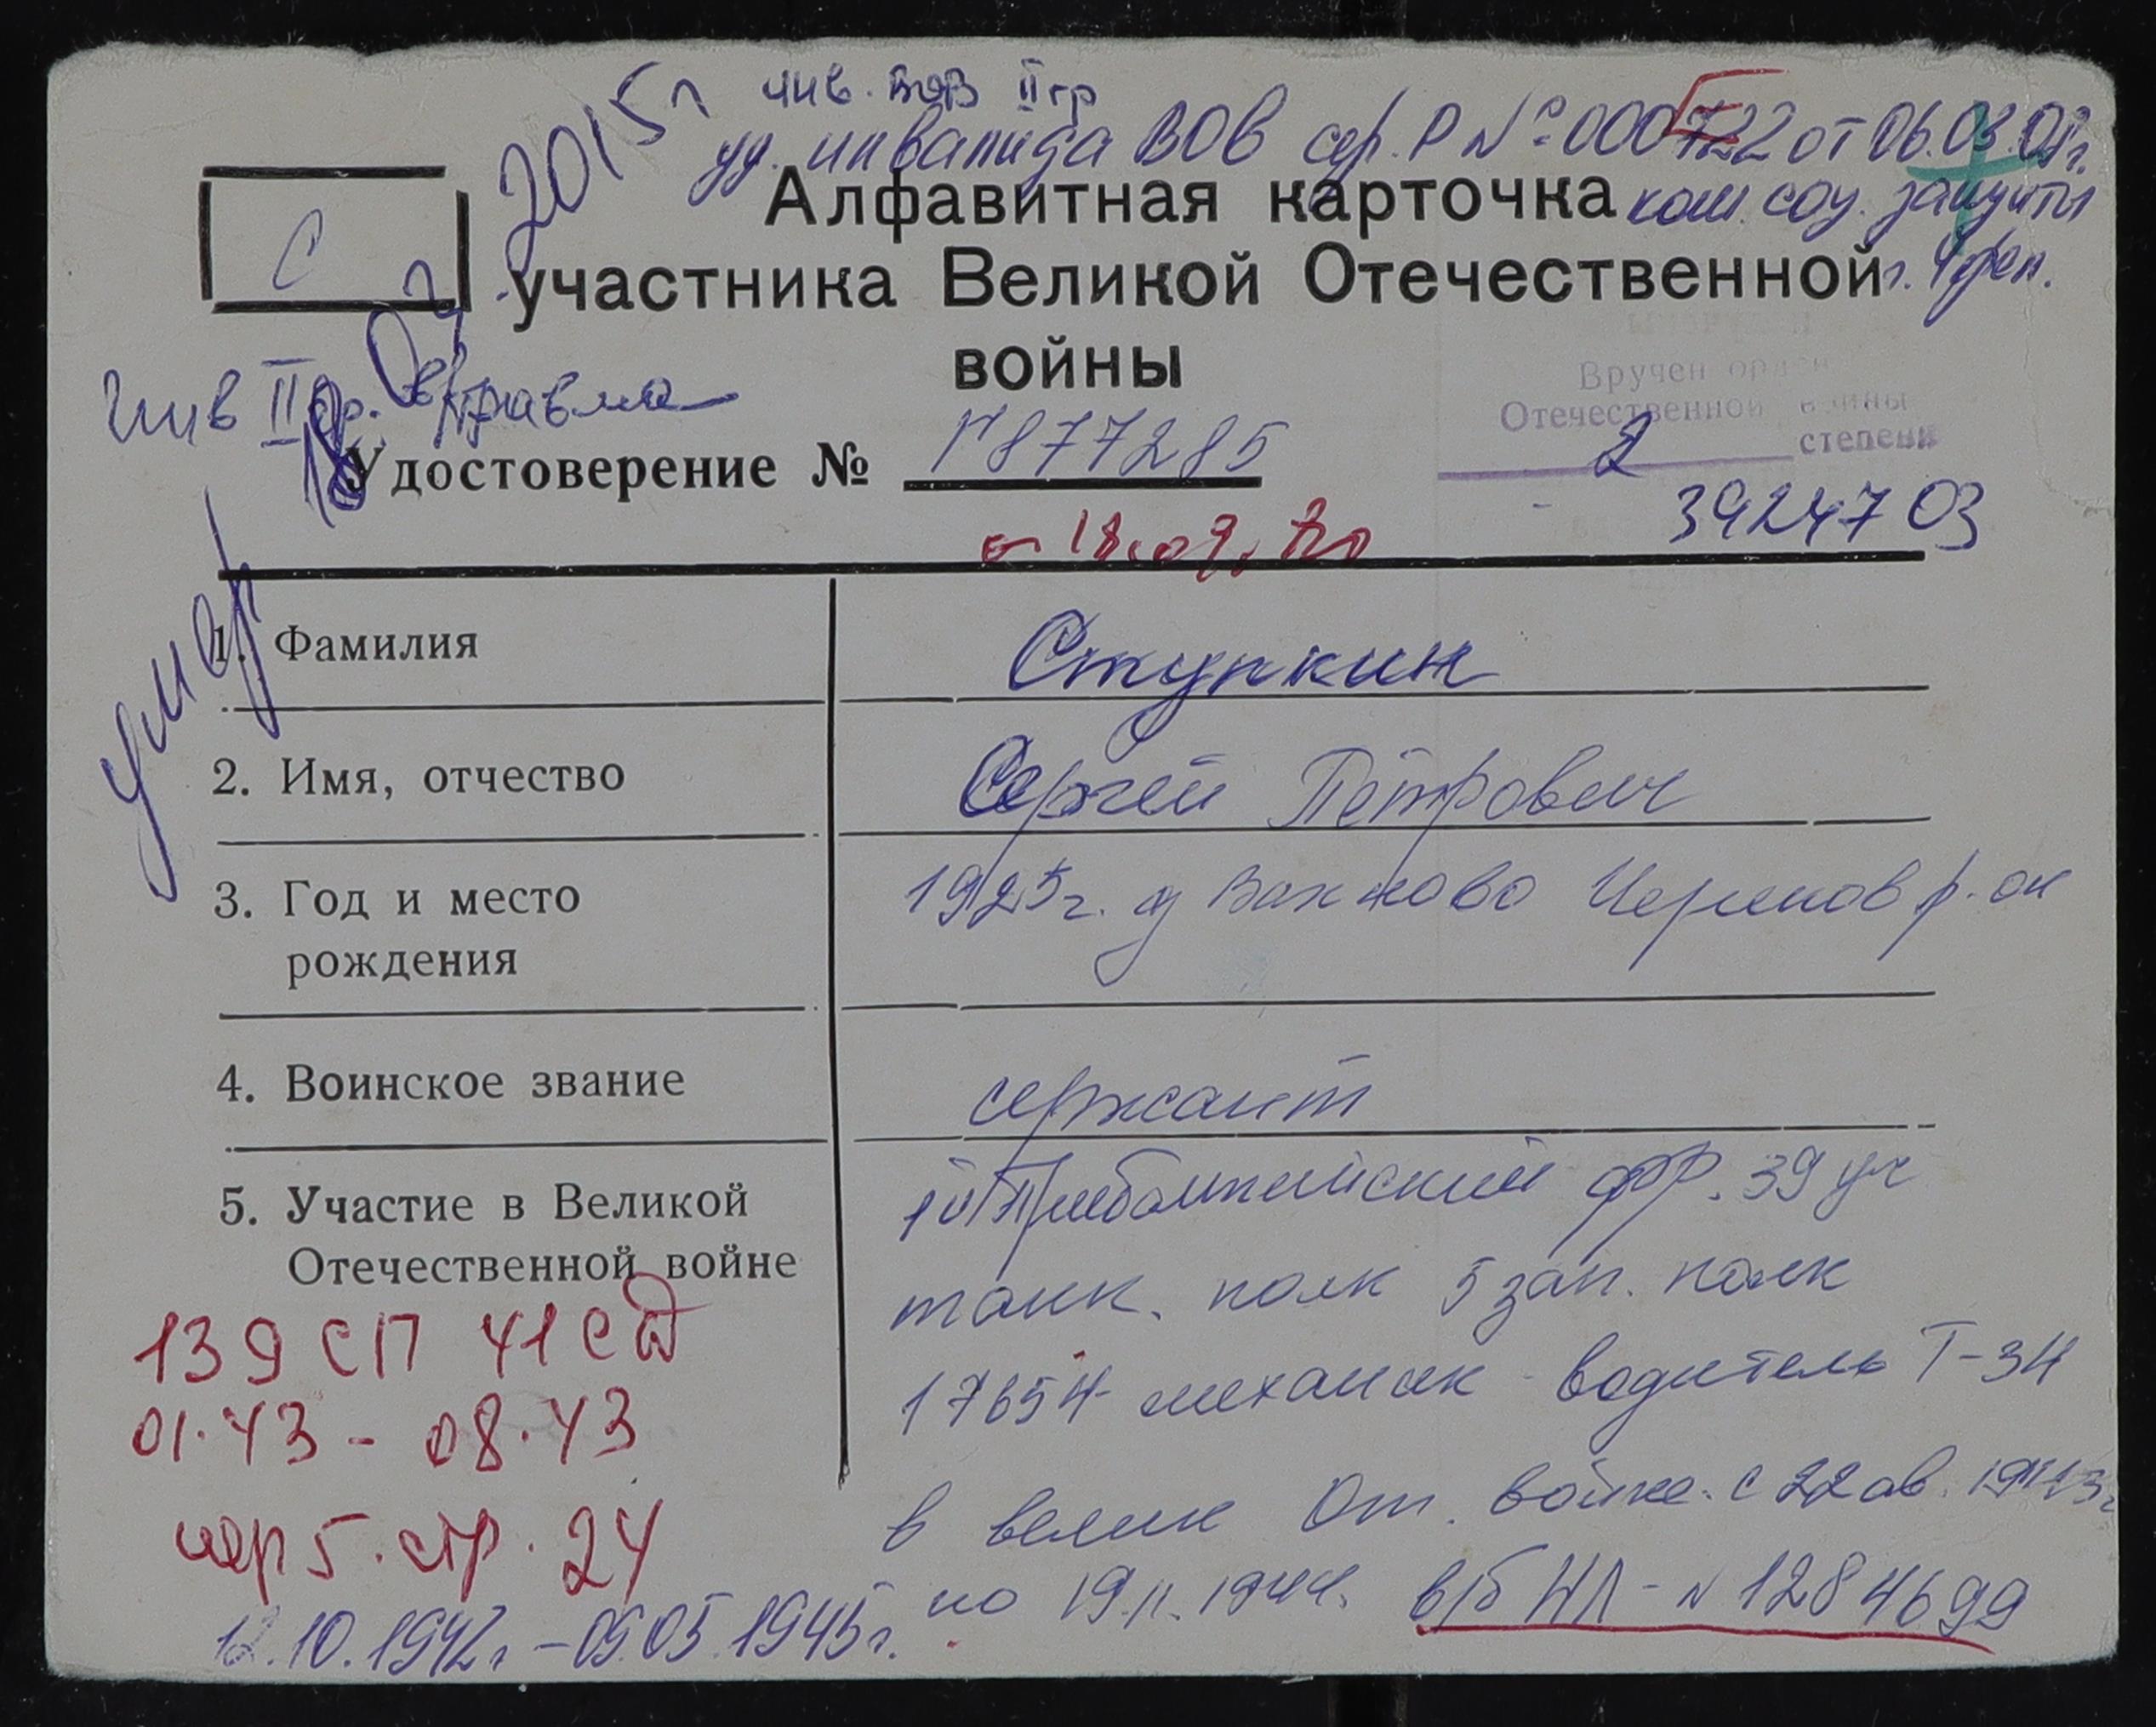 инв. ВОВ II гр
уд. инвалида ВОВ сер. Р № 000722 от 06.03.
С
Алфавитная карточка
ком. соц. защиты
участника Великой Отечественной
г. Череп.
войны
умер 18 07 2015г
Инв II гр. травма
Вручен орден
Отечественной войны
2 степени
Удостоверение № Г 877285
3924703
от 18.09.
1. Фамилия Ступкин
2. Имя, отчество Сергей Петрович
3. Год и место 1925г. д Вахново Черепов р-он
рождения
4. Воинское звание сержант
5. Участие в Великой
Отечественной войне
1й Прибалтийский фр. 39 уч
танк. полк 5 зап. полк
17654 механик-водитель Т-34
в велик От. войне. с 22 ав. 1943г
по 19.11.1944. в/б НЛ - N 1284699
139 СП 41 СД
01.43 - 08.43
пер 5. стр. 24
12.10.1942г - 09.05.1945г.